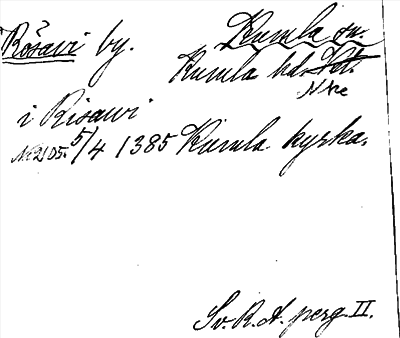 Rösawi by. Kumla sn.
Kumla hd. Nke
i Risawi
No 2105. 5/4 1385 Kumla kyrka.
Sv. R. A. perg. II.